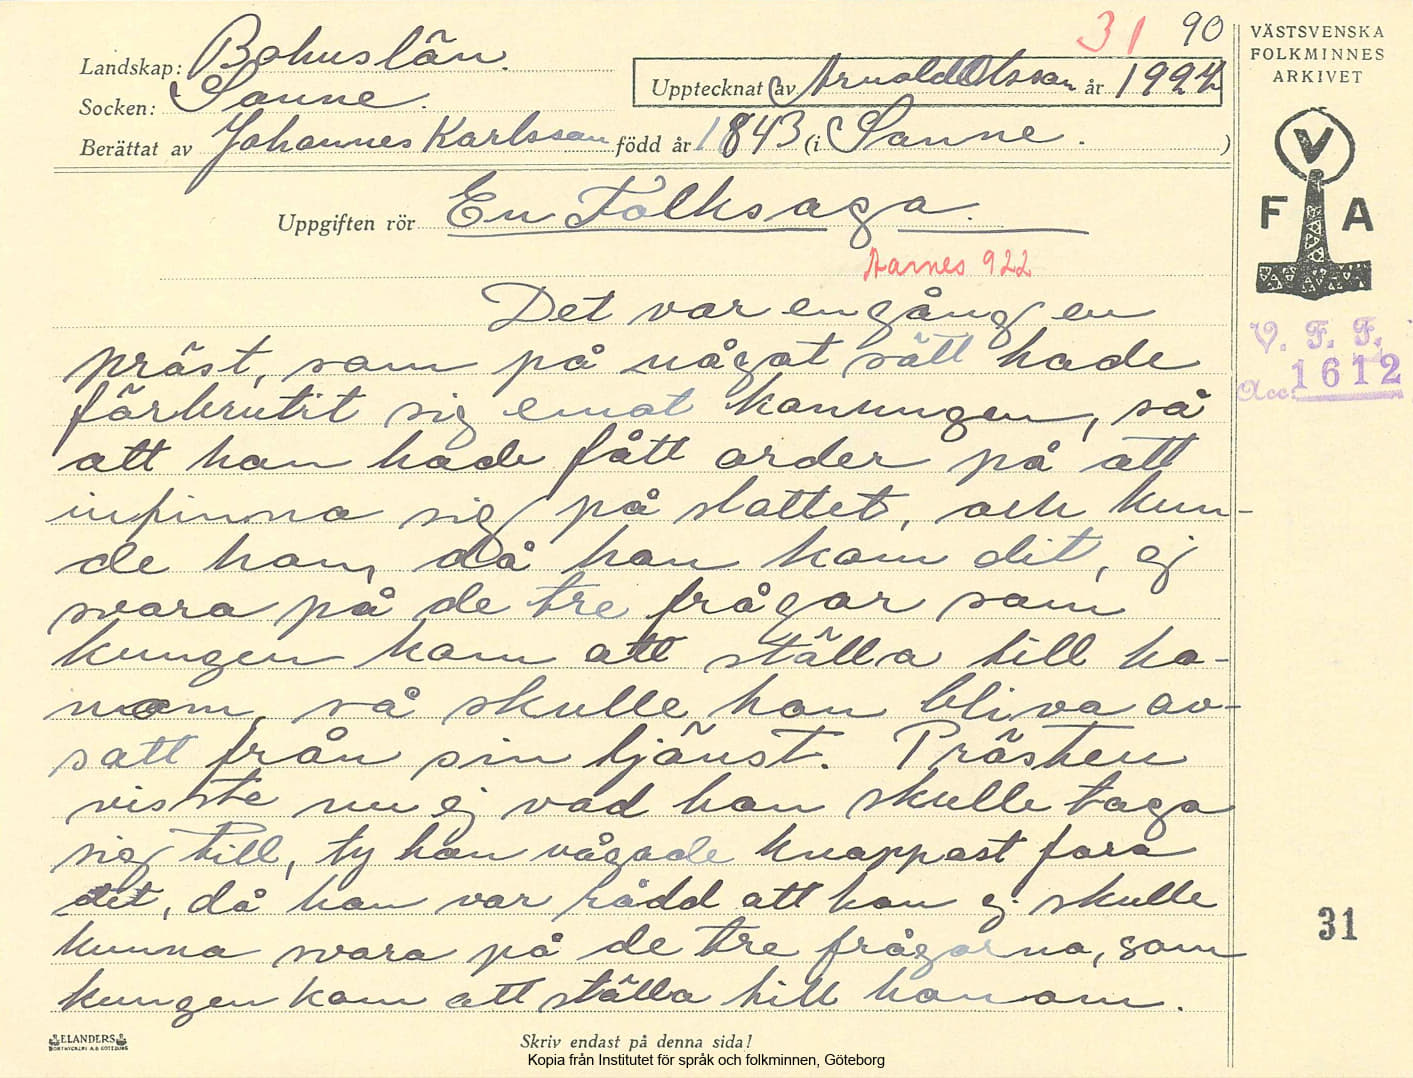 31 90
Landskap: Bohuslän.
Socken: Sanne.
Upptecknat av Arnold Olsson år 1924
Berättat av Johannes Karlsson född år 1843 (i Sanne. )
Uppgiften rör En Folksaga.
Aarnes 922
Det var en gång en
präst, som på något sätt hade
förbrutit sig emot konungen, så
att han hade fått order på att
infinna sig på slottet, och kun-
de han, då han kom dit, ej
svara på de tre frågor som
kungen kom att ställa till ho-
nom, så skulle han bliva av-
satt från sin tjänst. Prästen
visste nu ej vad han skulle taga
sig till, ty han vågade knappast fara
dit, då han var rädd att han ej skulle
kunna svara på de tre frågorna, som
kungen kom att ställa till honom.
ELANDERS
BOKTRYCKERI A.B. GÖTEBORG
Skriv endast på denna sida!
Kopia från Institutet för språk och folkminnen, Göteborg
VÄSTSVENSKA
FOLKMINNES
ARKIVET
V
F A
V. F. F.
Acc: 1612
31